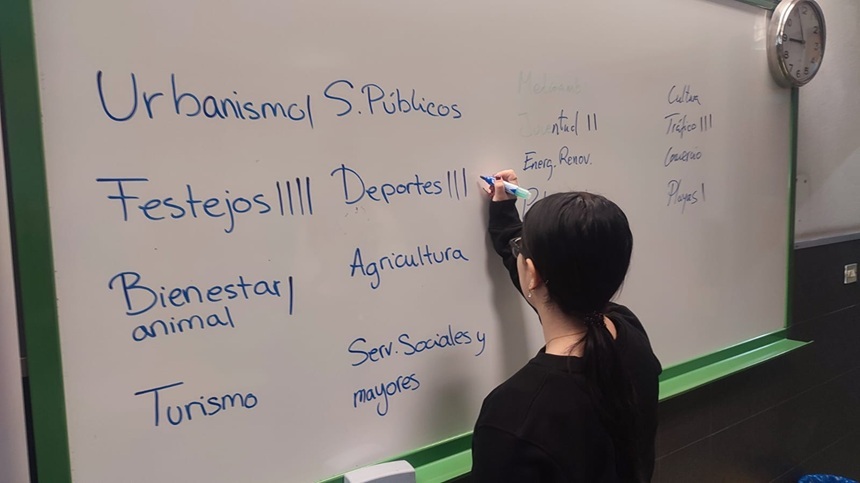 Urbanismo|
Festejos||||
Bienestar|
animal
Turismo
S. Públicos
Deportes|||
Agricultura
Serv. Sociales y
mayores
Juventud ||
Energ. Renov.
Cultura
Tráfico |||
Comercio
Playas |